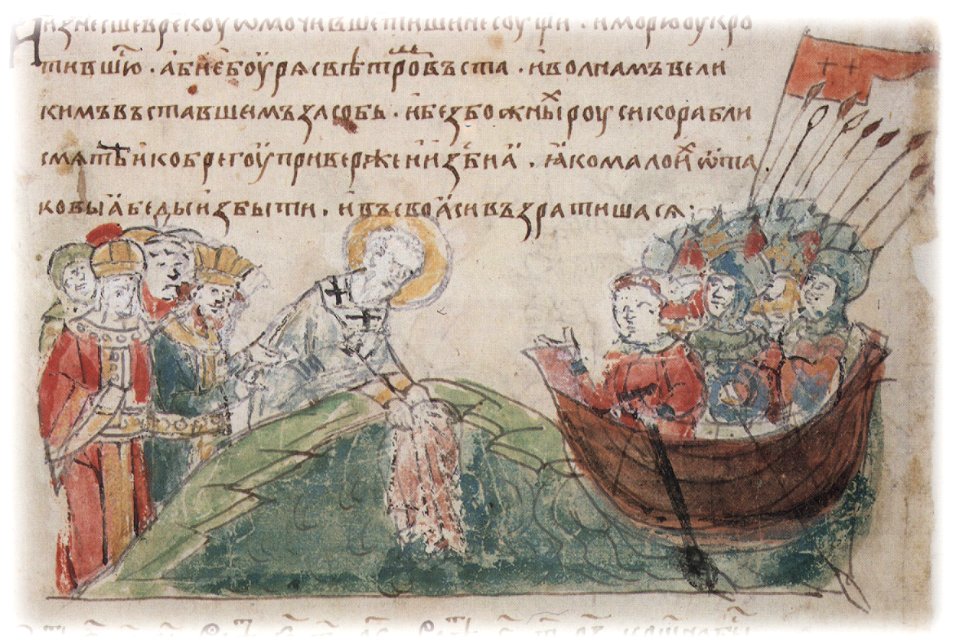 изнесше в рекоу омочивше тишине соущи . и морю оукро
тившюⷭ . абие боурѧ с вѣтромъ въста . и волнамъ вели
кимъ въставшемъ засобь . и безбожныⷯ роуси корабли
смѧте и ко брегоу привержени изби ѧ . ꙗко мало иⷯ ѿ та
ковыѧ беды избыти . и въ своѧси възратишасѧ .